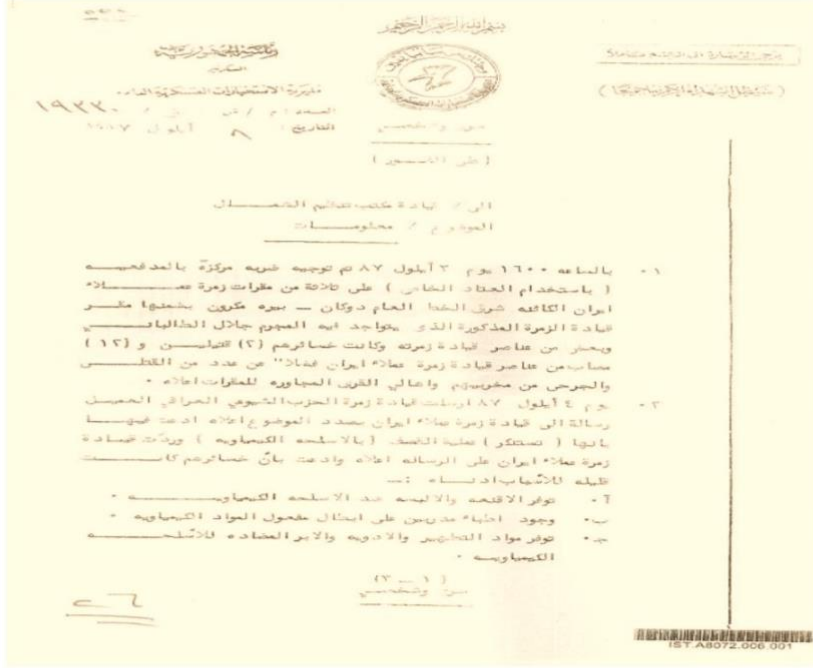 بسم الله الرحمن الرحيم
رئاسة الجمهورية
السكرتير
مديرية الاستخبارات العسكرية العامة
يرجى الاشارة الى
العدد / م /      / ١٩٣٣٠
التاريخ / ٨ أيلول ١٩٨٧
سري وشخصي
( على الفور )
الى / قيادة مكتب تنظيم الشمال
الموضوع / معلومات
١ - بالساعه ١٦٠٠ يوم ٣ أيلول ٨٧ تم توجيه ضربه مركزة بالمدفعيه
( باستخدام العتاد الخاص ) على ثلاثة من مقرات زمرة عملاء
ايران الكائنه شرق الخط العام دوكان - بيره مكرون بضمنها مقر
قيادة الزمرة المذكورة الذي يتواجد فيه المجرم جلال الطالباني
وبعض من عناصر قيادة زمرته وكانت خسائرهم (٢) قتيلين و (١٢)
مصاب من عناصر قيادة زمرة عملاء ايران فضلا" عن عدد من القتلى
والجرحى من مخربيهم واهالي القرى المجاوره للمقرات اعلاه .
٢ - يوم ٤ أيلول ٨٧ ارسلت قيادة زمرة الحزب الشيوعي العراقي العميل
رسالة الى قيادة زمرة عملاء ايران بصدد الموضوع اعلاه ادعت فيها
بانها ( تستنكر ) عملية القصف ( بالاسلحه الكيمياويه ) وردت قيادة
زمرة عملاء ايران على الرساله اعلاه وادعت بأن خسائرهم كانت
قليله للأسباب ادناه :-
أ - توفر الاقنعه والالبسه ضد الاسلحه الكيمياويه .
ب - وجود اطباء مدربين على ابطال مفعول المواد الكيمياويه .
ج - توفر مواد التطهير والادويه والابر المضاده للأسلحه
الكيمياويه .
( ١ - ٣ )
سري وشخصي
٢٦
IST.A8072.006.001